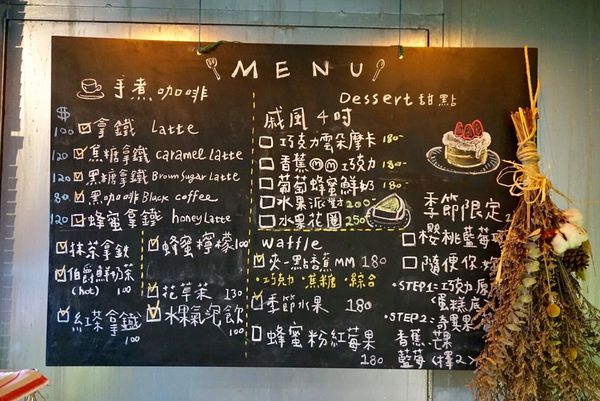 MENU
手煮咖啡
$
100 拿鐵 Latte
120 焦糖拿鐵 caramel Latte
120 黑糖拿鐵 Brown sugar Latte
80 黑咖啡 Black coffee
120 蜂蜜拿鐵 honey Latte
抹茶拿鐵 100
伯爵鮮奶茶
(hot) 100
紅茶拿鐵 100
蜂蜜檸檬 100
花草茶 130
水果氣泡飲 100
Dessert 甜點
戚風4吋
巧克力雲朵摩卡 180-
香蕉 巧克力 200-
葡萄蜂蜜鮮奶 180-
水果派對 200-
水果花圈 250
Waffle
夾一點香蕉MM 180
•巧克力 •焦糖 •綜合
季節水果 180
蜂蜜粉紅莓果
180
季節限定
櫻桃藍莓
隨便你
•STEP1:巧克力 原
(蛋糕底
•STEP2:奇異果
香蕉.芒果
藍莓(擇2)